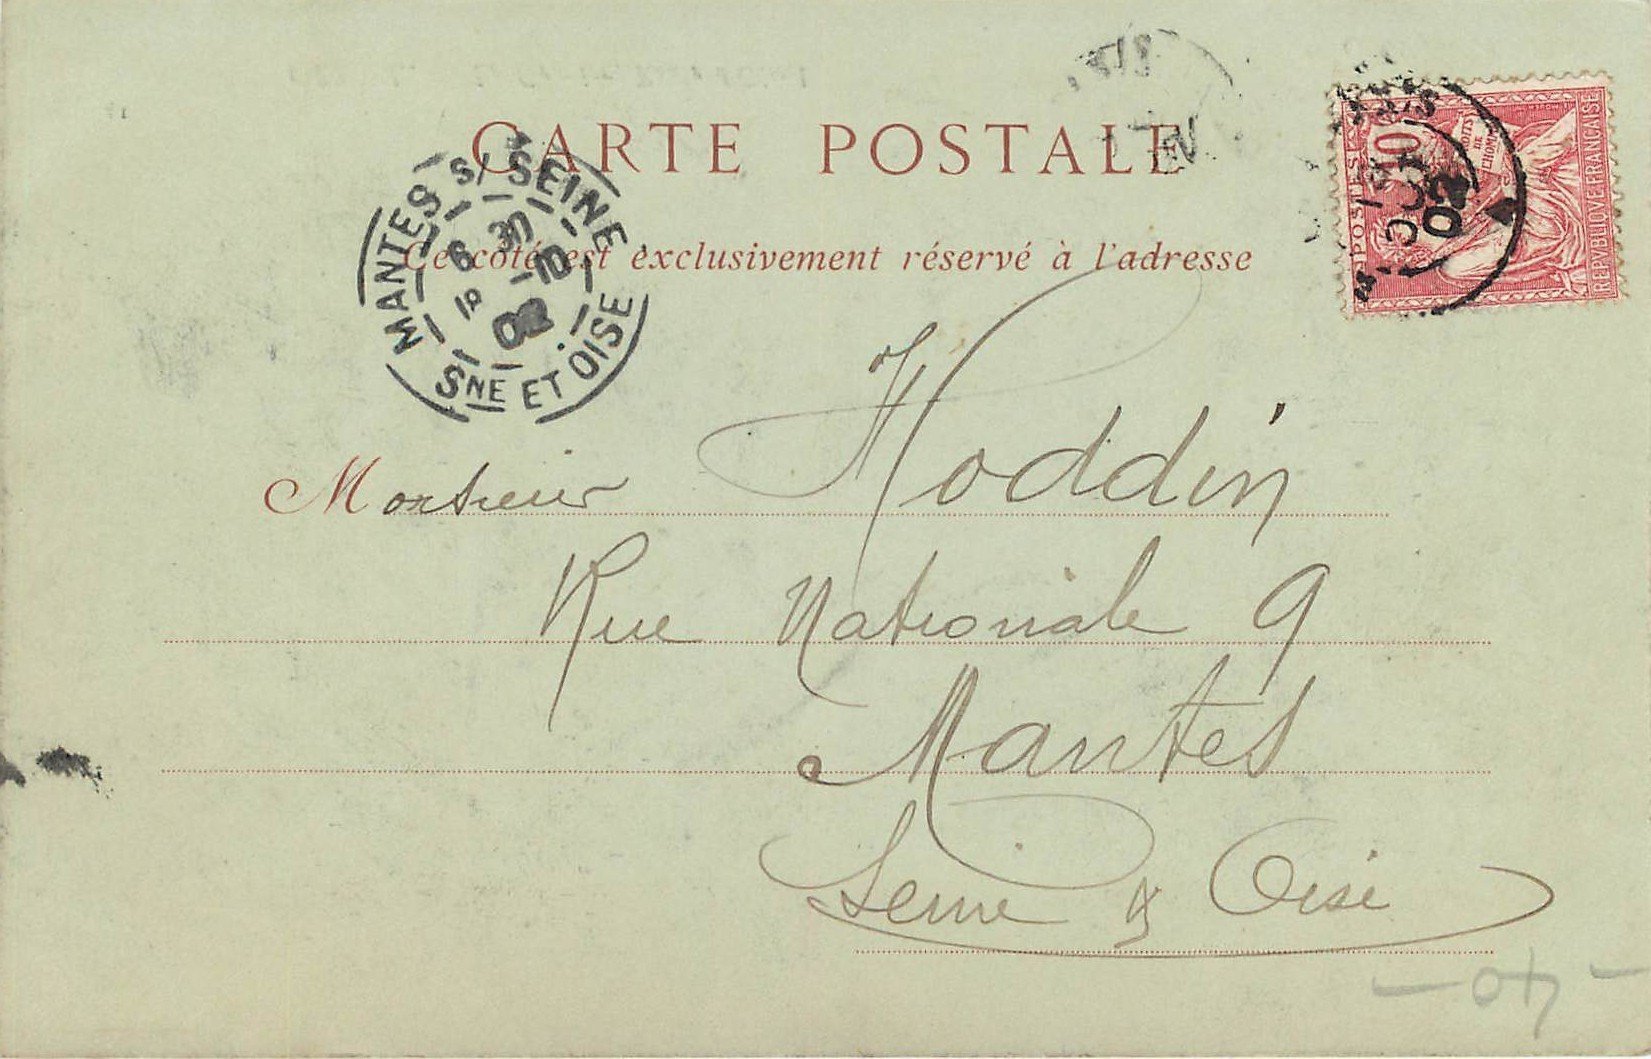 CARTE POSTALE
Ce côté est exclusivement réservé à l'adresse
MANTES S/ SEINE
6 30
10
02
SNE ET OISE
POSTES 10
DROITS DE L'HOMME
REPVBLIQVE FRANÇAISE
02
Monsieur Hoddin
Rue Nationale 9
Mantes
Seine & Oise